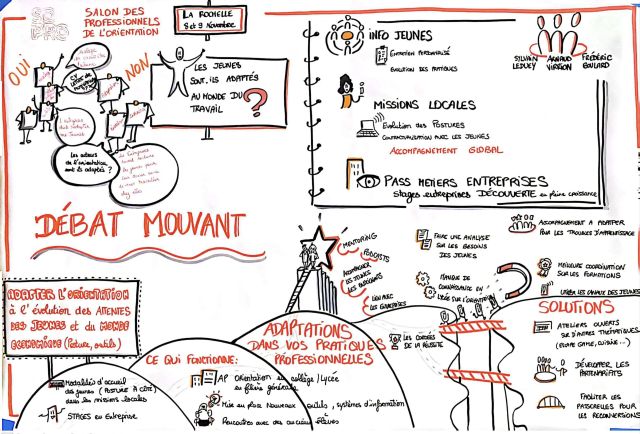 SALON DES
PROFESSIONNELS
DE L'ORIENTATION
LA ROCHELLE
8 et 9 Novembre
OUI
NON
LES JEUNES
SONT-ILS ADAPTÉS
AU MONDE DU
TRAVAIL
?
Les acteurs
de l'orientation
sont-ils adaptés ?
DÉBAT MOUVANT
INFO JEUNES
ENTRETIEN PERSONNALISÉ
EVOLUTION DES PRATIQUES
SYLVAIN
LEDUEY
ARNAUD
FRÉDÉRIC
MISSIONS LOCALES
Evolution des POSTURES
CONTRACTUALISATION AVEC LES JEUNES
ACCOMPAGNEMENT GLOBAL
PASS METIERS ENTREPRISES
stages entreprises DÉCOUVERTE en pleine croissance
ADAPTER L'ORIENTATION
à l'évolution des ATTENTES
DES JEUNES et du MONDE
ECONOMIQUE (Posture, outils)
CE QUI FONCTIONNE:
Modalités d'accueil
des jeunes (POSTURE À CÔTÉ)
dans les missions locales
STAGES en Entreprise
AP ORIENTATION au collège / Lycée
en filière générale
Mise en place Nouveaux outils, systèmes d'information
Rencontres avec des anciens élèves
ADAPTATIONS
DANS VOS PRATIQUES
PROFESSIONNELLES
MENTORING
PODCASTS
ACCOMPAGNER
LES JEUNES
LIEN AVEC
LES ENTREPRISES
FAIRE UNE ANALYSE
SUR LES BESOINS
DES JEUNES
MANQUE DE
LES CORDÉES
DE LA RÉUSSITE
ACCOMPAGNEMENT A ADAPTER
POUR LES TROUBLES D'APPRENTISSAGE
MEILLEURE COORDINATION
SUR LES FORMATIONS
SOLUTIONS
ATELIERS OUVERTS
SUR D'AUTRES THÉMATIQUES
(ESCAPE GAME, CUISINE...)
DÉVELOPPER LES
PARTENARIATS
FACILITER LES
PASSERELLES POUR
LES RECONVERSIONS